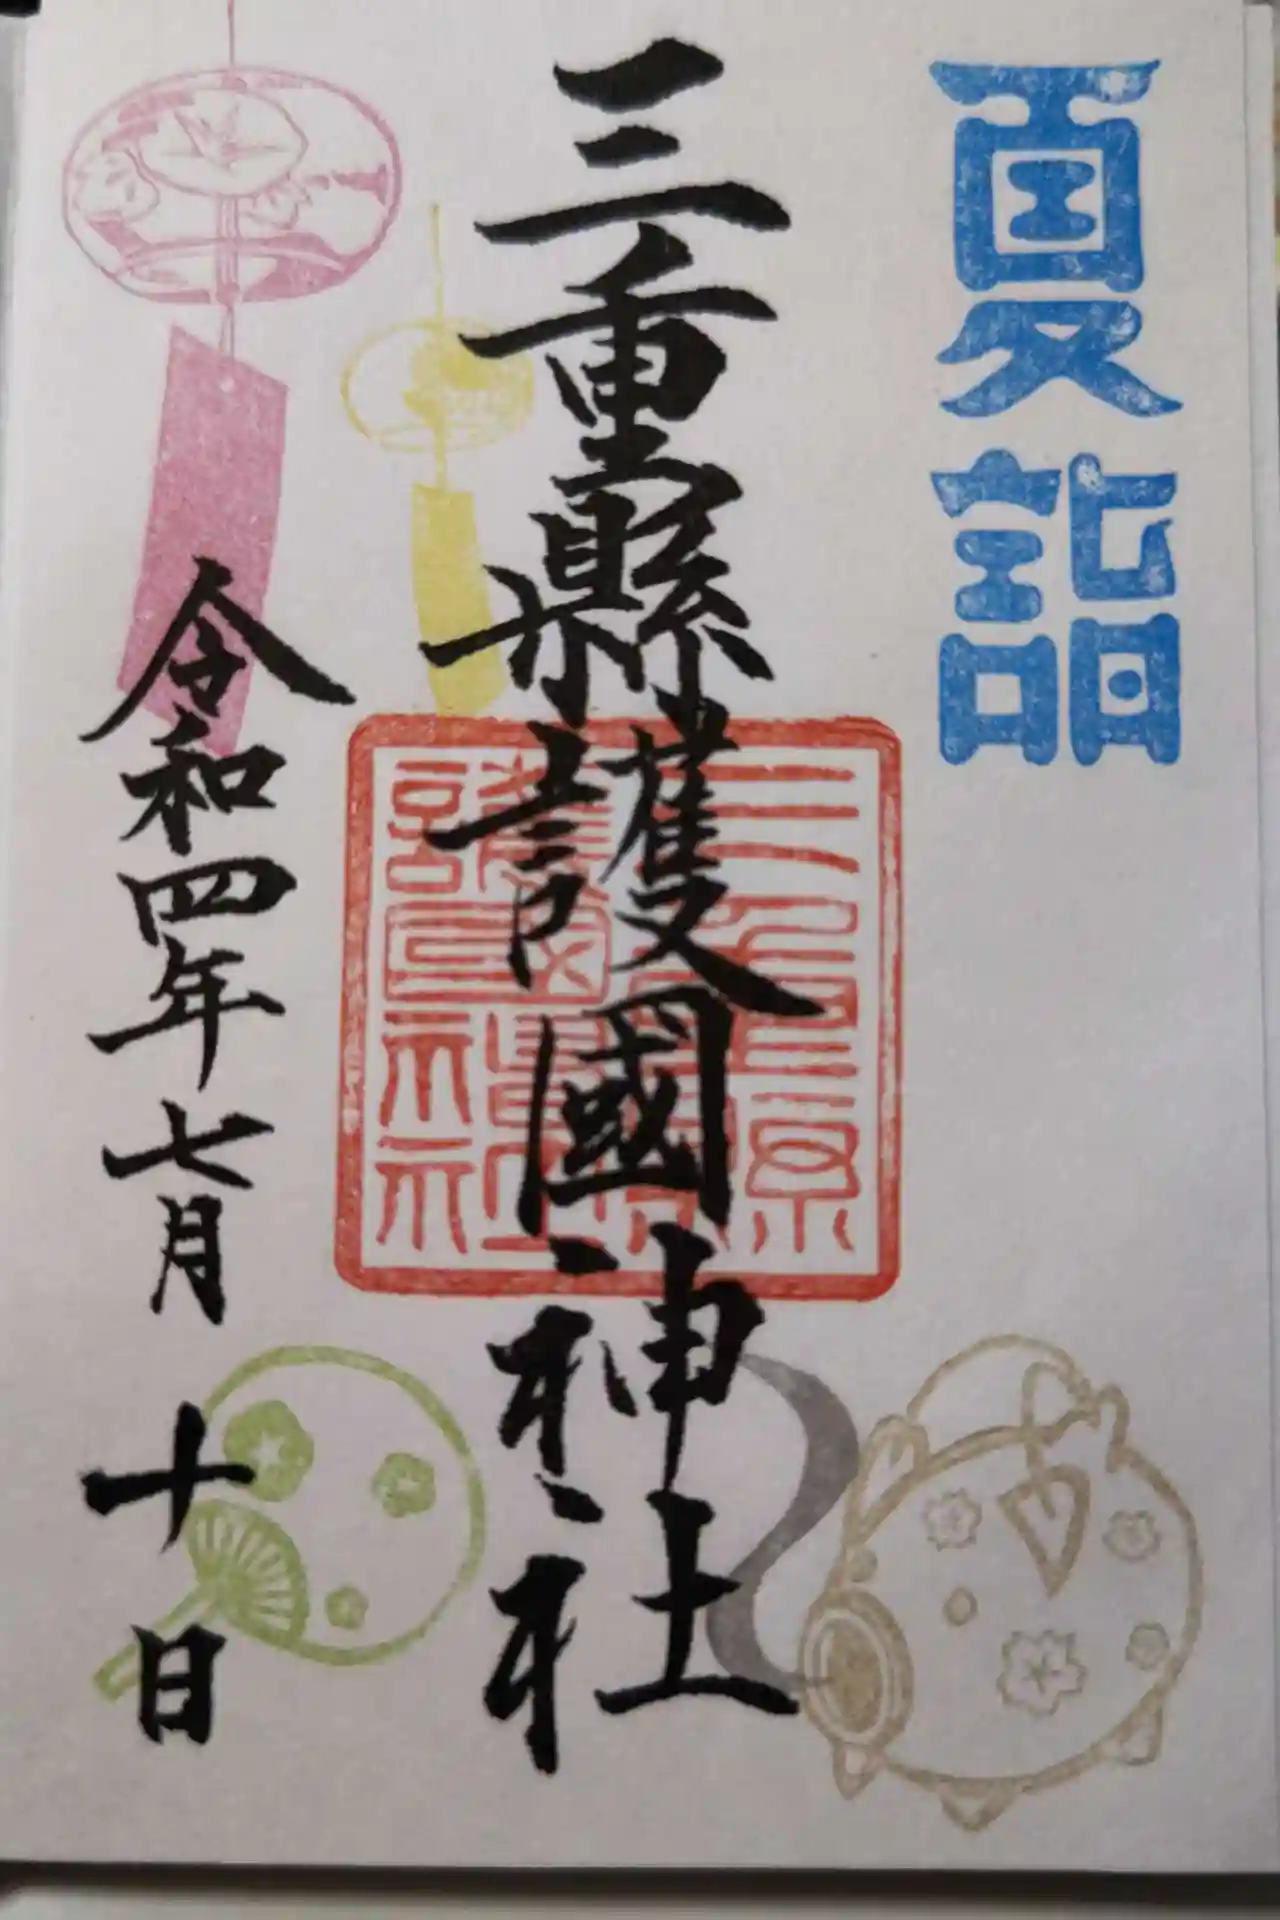 夏詣
三重縣護國神社
三重縣護國神社
令和四年七月十日